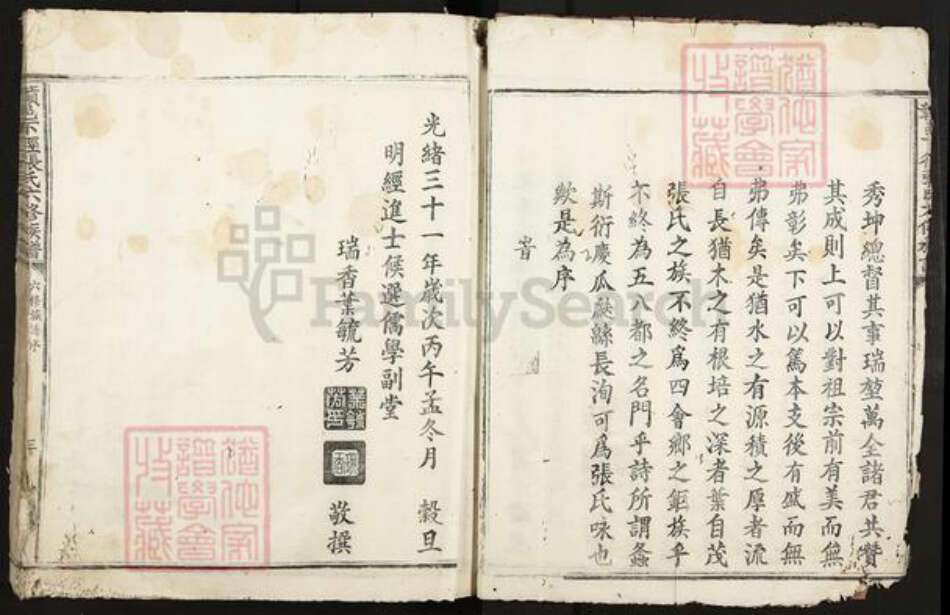 秀坤總督其事瑞堃萬全諸君共贊
其成則上可以對祖宗前有美而無
弗彰矣下可以篤本支後有盛而無
弗傳矣是猶水之有源積之厚者流
自長猶木之有根培之深者葉自茂
張氏之族不終為四會鄉之鉅族乎
不終為五八都之名門乎詩所謂螽
斯衍慶瓜瓞緜長洵可為張氏咏也
歟是為序
旹
光緒三十一年歲次丙午孟冬月 穀旦
明經進士候選儒學副堂
瑞香葉毓芳 敬撰
張氏六修族譜
六修
序
三
譜學會
收藏
譜學會
收藏
FamilySearch